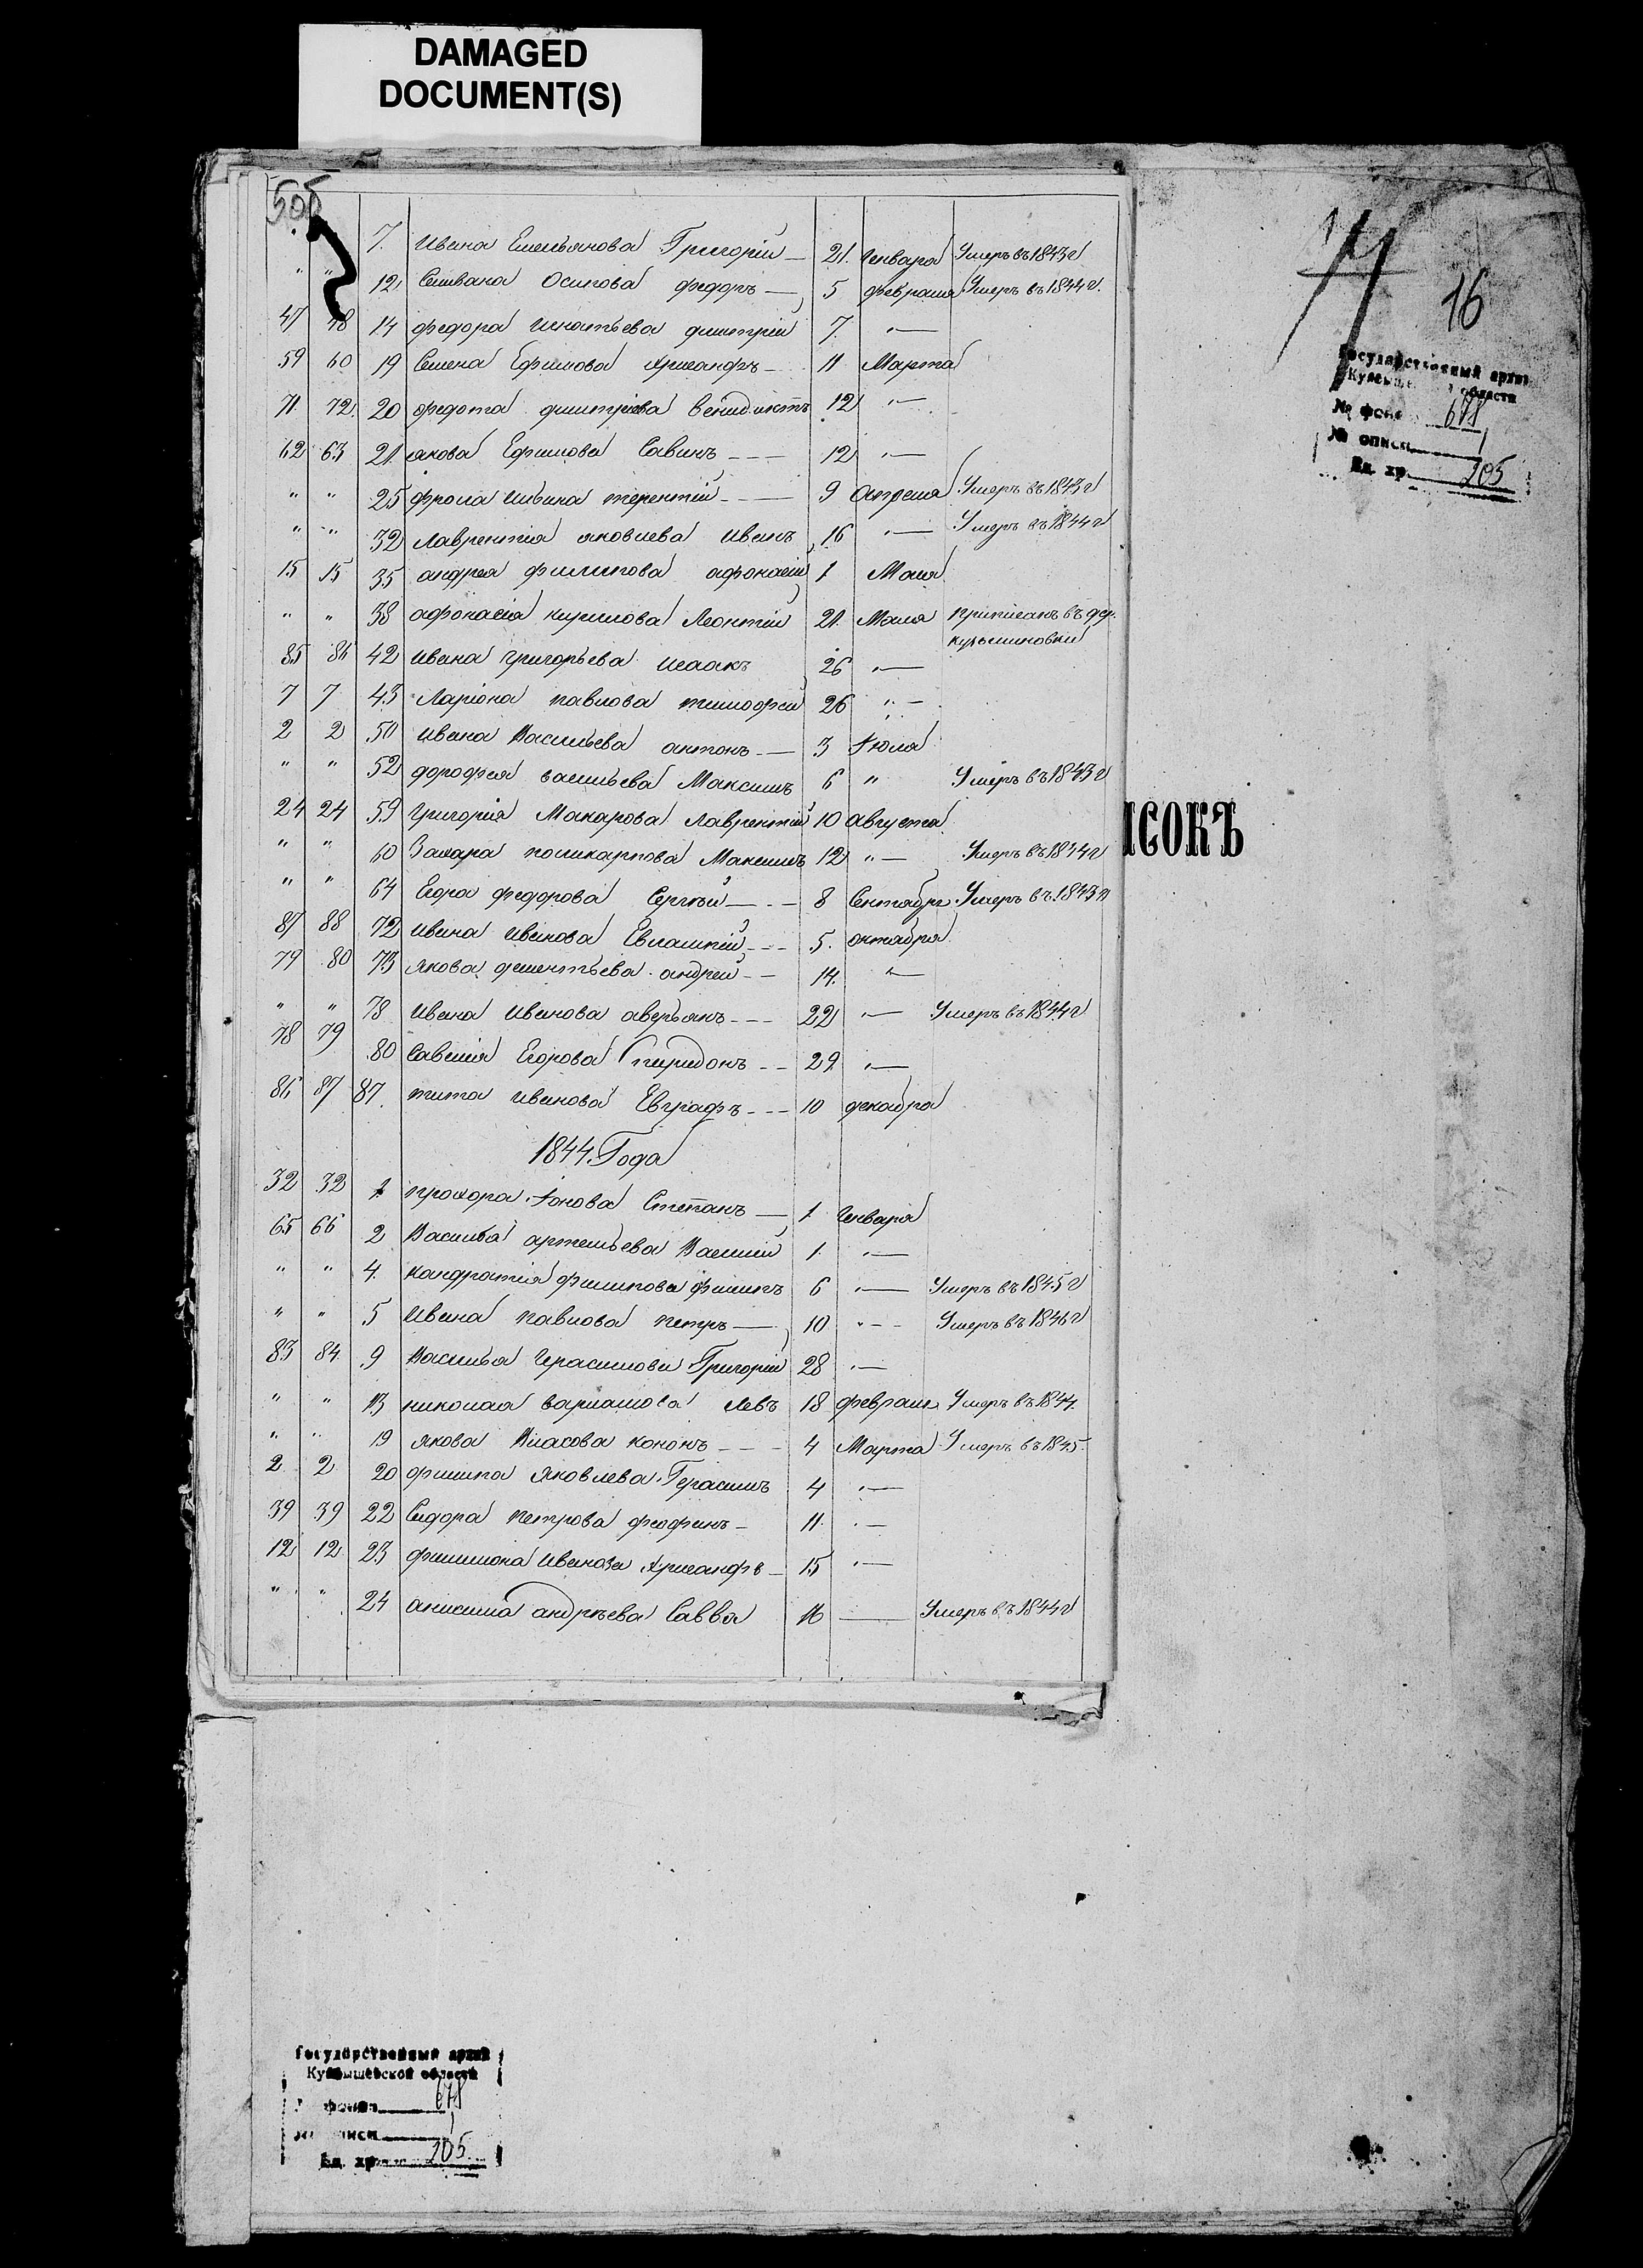 DAMAGED
DOCUMENT(S)
505
7. Ивана Емельянова Григорій 21. Генваря Умеръ въ 1843 г
" " 12 Селивана Осипова федоръ 5 февраля Умеръ въ 1844 г.
47 48 14 федора Игнатьева дмитрій 7. "
59 60 19 Семена Ефимова Хрисанфъ 11 Марта
71. 72. 20 федота дмитріева Венидиктъ 12 "
62 63 21 якова Ефимова Савинъ 12 "
" " 25 фрола Ильина терентій 9 Апреля Умеръ въ 1843 г
" " 32 Лаврентія яковлева Иванъ 16 " Умеръ въ 1844 г
15 15 35 андрея филипова афонасій 1 Маия
" " 38 афонасія кирилова Леонтій 21. Маия приписанъ въ дер.
кузьминовки
85 86 42 ивана григорьева исаакъ 26 "
7 7 43 Ларіона павлова тимофей 26 "
2 2 50 ивана Васильева антонъ 3 Июля
" " 52 дорофея васильева Максимъ 6 " Умеръ въ 1843 г
24 24 59 Григорія Макарова Лаврентій 10 августа
" " 60 Захара поликарпова Максимъ 12 " Умеръ въ 1844 г
" " 64 Егора федорова Сергѣй 8 Сентября Умеръ въ 1843 г
87 88 72 ивана иванова Евлампій 5. октября
79 80 73 якова дементьева андрей 14. "
" " 78 Ивана Иванова аверьянъ 22 " Умеръ въ 1844 г
78 79 80 Савелія Егорова Спиридонъ 29 "
86 87 87. тита иванова Евграфъ 10 декабря
1844. Года
32 32 1 прохора Іонова Степанъ 1 Генваря
65 66 2 Василья артемьева Василій 1. "
" " 4. кандратія филипова филипъ 6 " Умеръ въ 1845 г
" " 5 Ивана павлова петръ 10 " Умеръ въ 1846 г
83 84 9 Василья Герасимова Григорій 28 "
" " 13 николая варламова Левъ 18 февраля Умеръ въ 1844.
" " 19 якова Власова кононъ 4 Марта Умеръ въ 1845.
2 2 20 филипа Яковлева Герасимъ 4 "
39 39 22 Сидора петрова феофанъ 11. "
12 12 23 филимона Иванова Хрисанфъ 15 "
" " 24 анисима андрѣева Савва 16 Умеръ въ 1844 г
16
Государственный архив
Куйбышевской области
№ фонда 678
№ описи 1
Ед. хр. 205
ИСОКЪ
Государственный архив
Куйбышевской области
№ фонда 678
№ описи 1
Ед. хр. 205